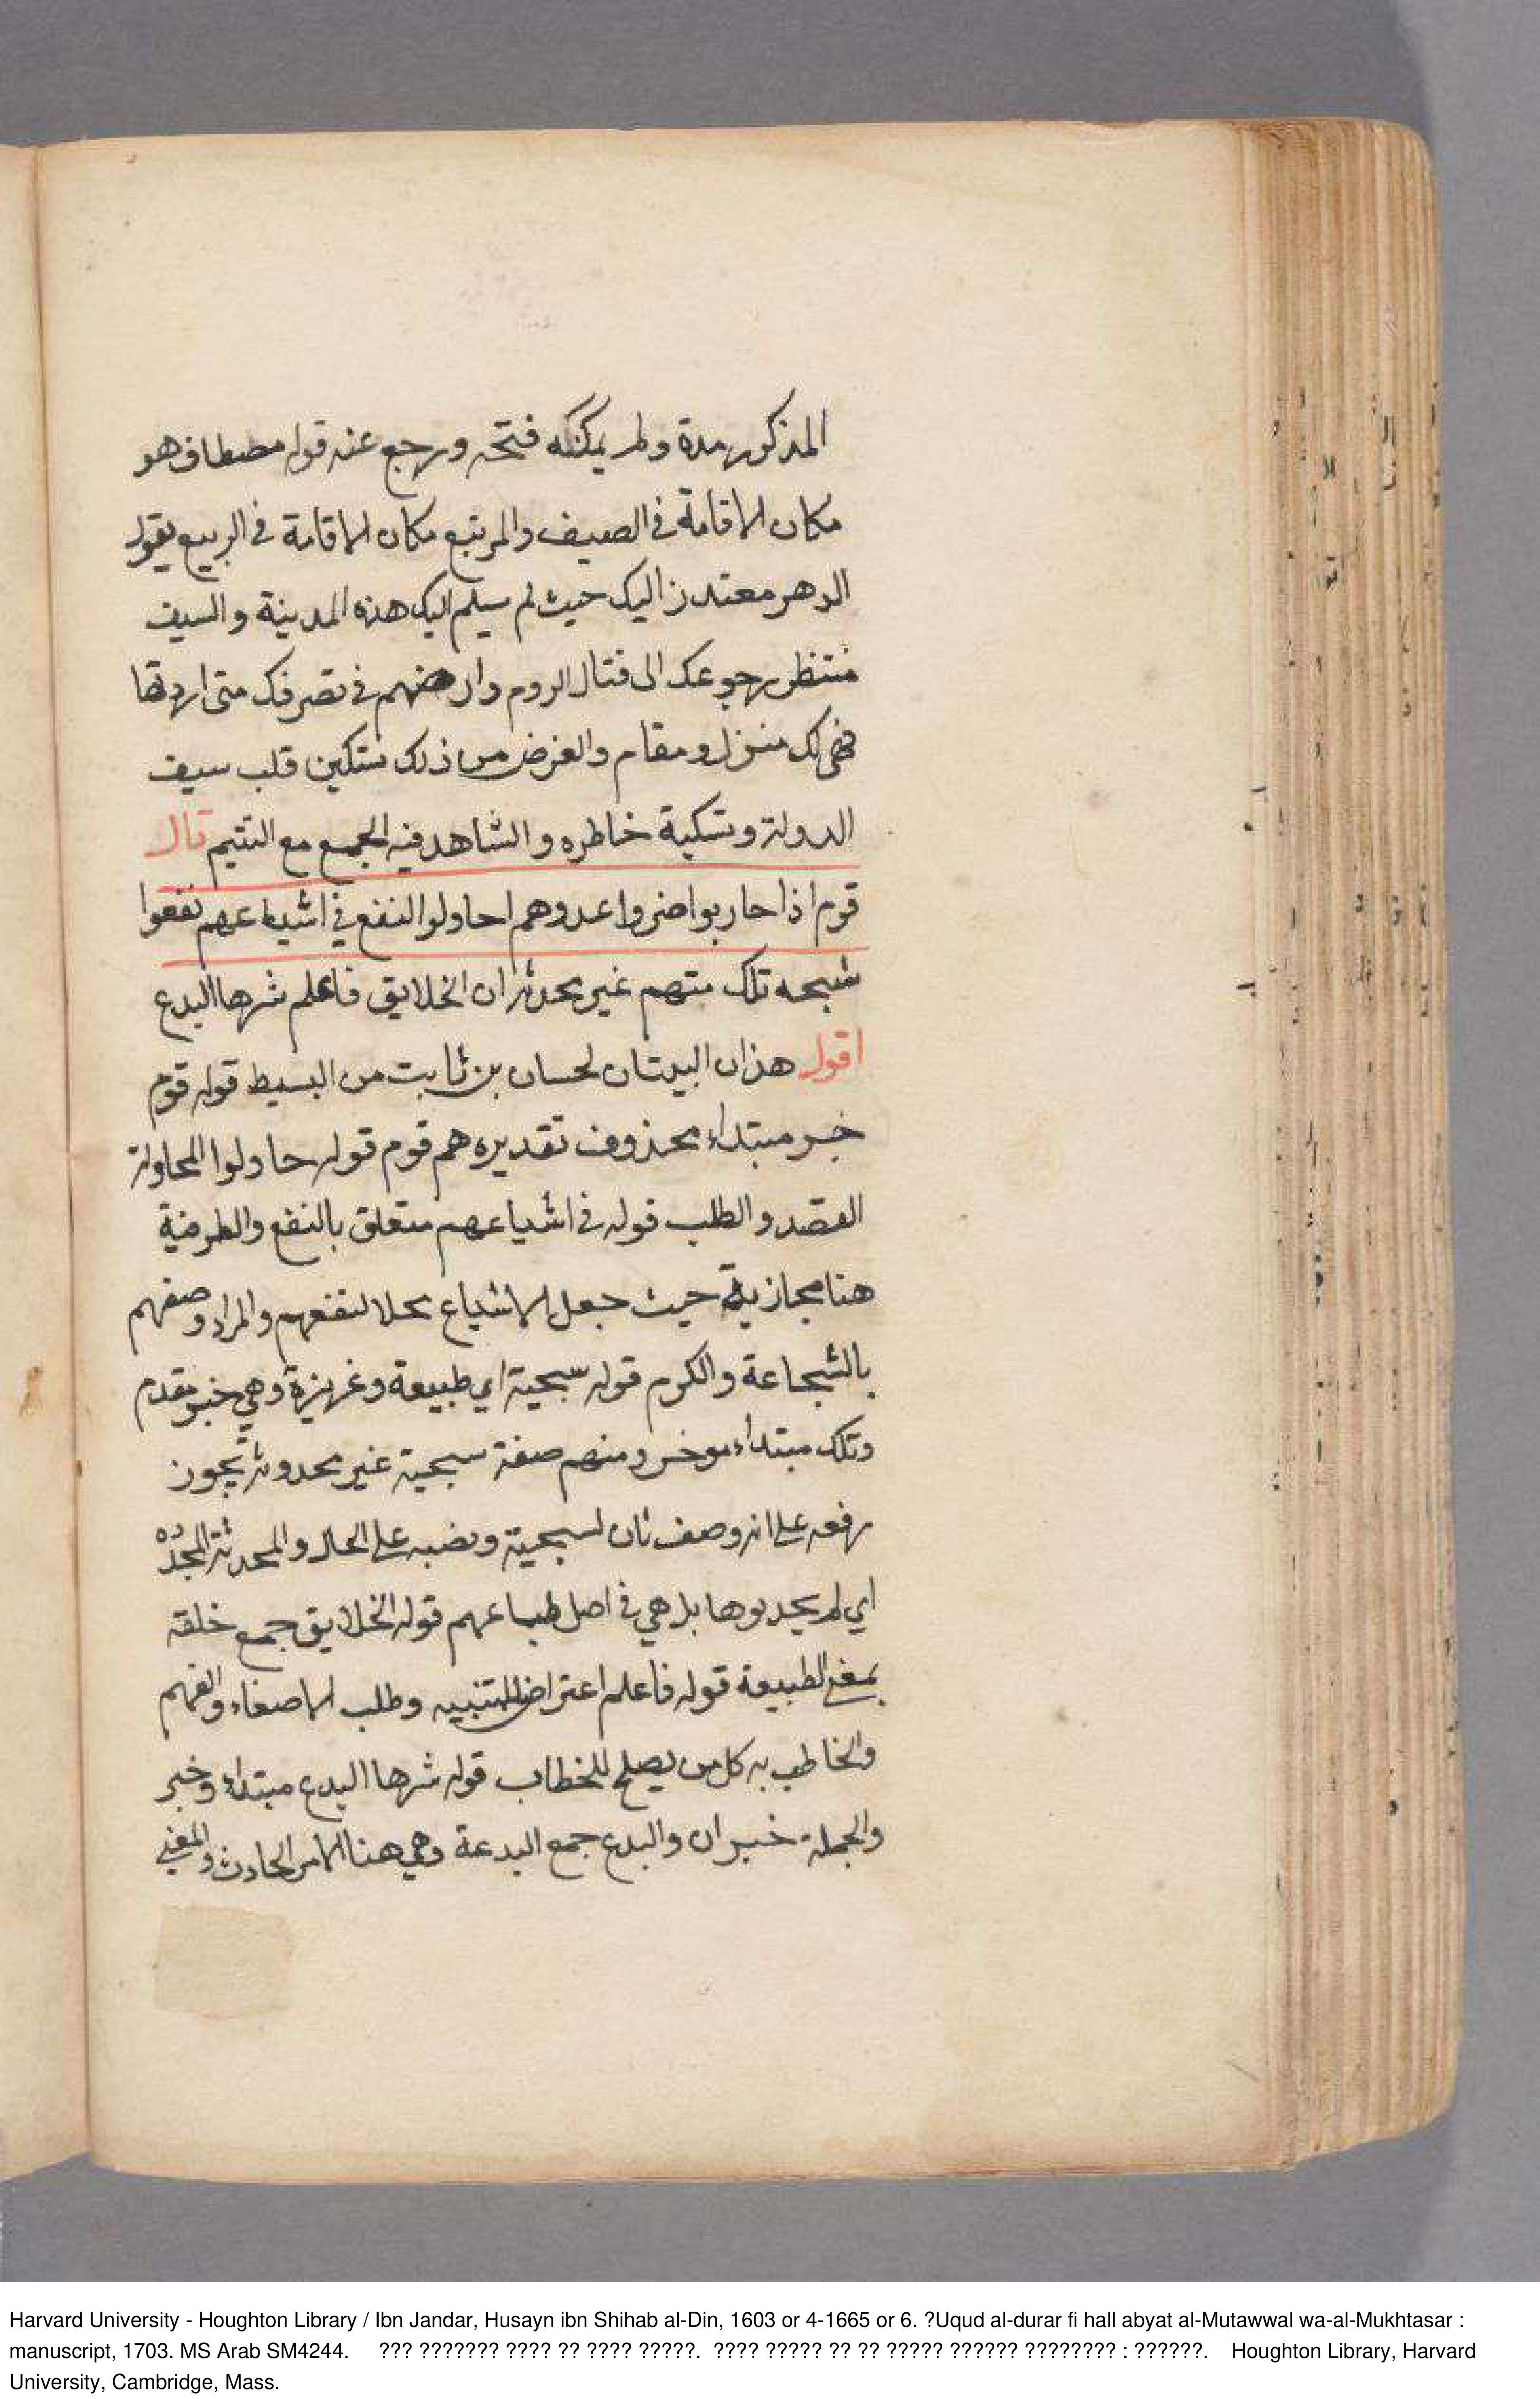 المذكور مدة ولم يمكنه فتحه ورجع عنه قوله مصطاف هو
مكان الاقامة في الصيف والمرتبع مكان الاقامة في الربيع يقول
الدهر معتذر اليك حيث لم يسلم اليك هذه المدينة والسيف
منتظر رجوعك الى قتال الروم وارضهم في تصرفك متى اردتها
فهي لك منزل ومقام والغرض من ذلك تسكين قلب سيف
الدولة وتسكية خاطره والشاهد فيه الجمع مع التتيم قال
قوم اذا حاربوا ضروا عدوهم احاولوا النفع في اشياعهم نفعوا
سجيه تلك منهم غير محدثة ان الخلايق فاعلم شرها البدع
اقول هذان البيتان لحسان بن ثابت من البسيط قوله قوم
خبر مبتداء محذوف تقديره هم قوم قوله حاولوا المحاولة
القصد والطلب قوله في اشياعهم متعلق بالنفع والظرفية
هنا مجازية حيث جعل الاشياع محلا لنفعهم والمراد وصفهم
بالشجاعة والكرم قوله سجية اي طبيعة وغريزة وهي خبر مقدم
وتلك مبتداء موخر ومنهم صفة سجية غير محدوثة يجوز
رفعه على انه وصف ثان لسجية ونصبه على الحال والمحدثة المجدده
اي لم يحدثوها بل هي في اصل طباعهم قوله الخلايق جمع خلقة
بمعنى الطبيعة قوله فاعلم اعتراض للتنبيه وطلب الاصغاء والفهم
والخاطب به كل من يصلح للخطاب قوله شرها البدع مبتداء وخبر
والجملة خبر ان والبدع جمع البدعة وهي هنا الامر الحادث والمعني
Harvard University - Houghton Library / Ibn Jandar, Husayn ibn Shihab al-Din, 1603 or 4-1665 or 6. ?Uqud al-durar fi hall abyat al-Mutawwal wa-al-Mukhtasar :
manuscript, 1703. MS Arab SM4244. ??? ??????? ???? ?? ???? ?????. ???? ????? ?? ?? ????? ?????? ???????? : ??????. Houghton Library, Harvard
University, Cambridge, Mass.